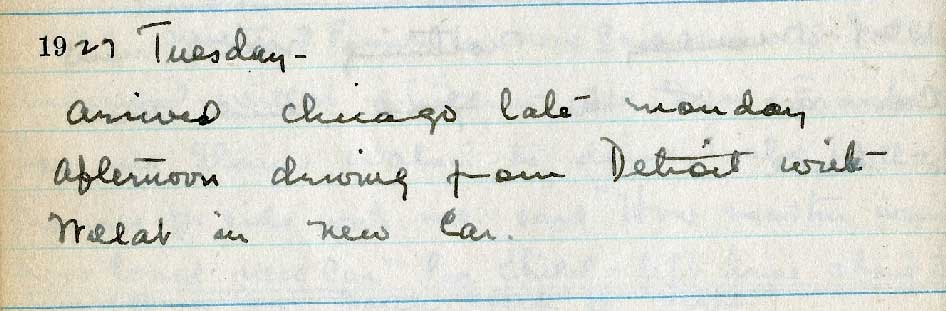 1927 Tuesday-
Arrived Chicago late Monday
afternoon driving from Detroit with
in new Car.